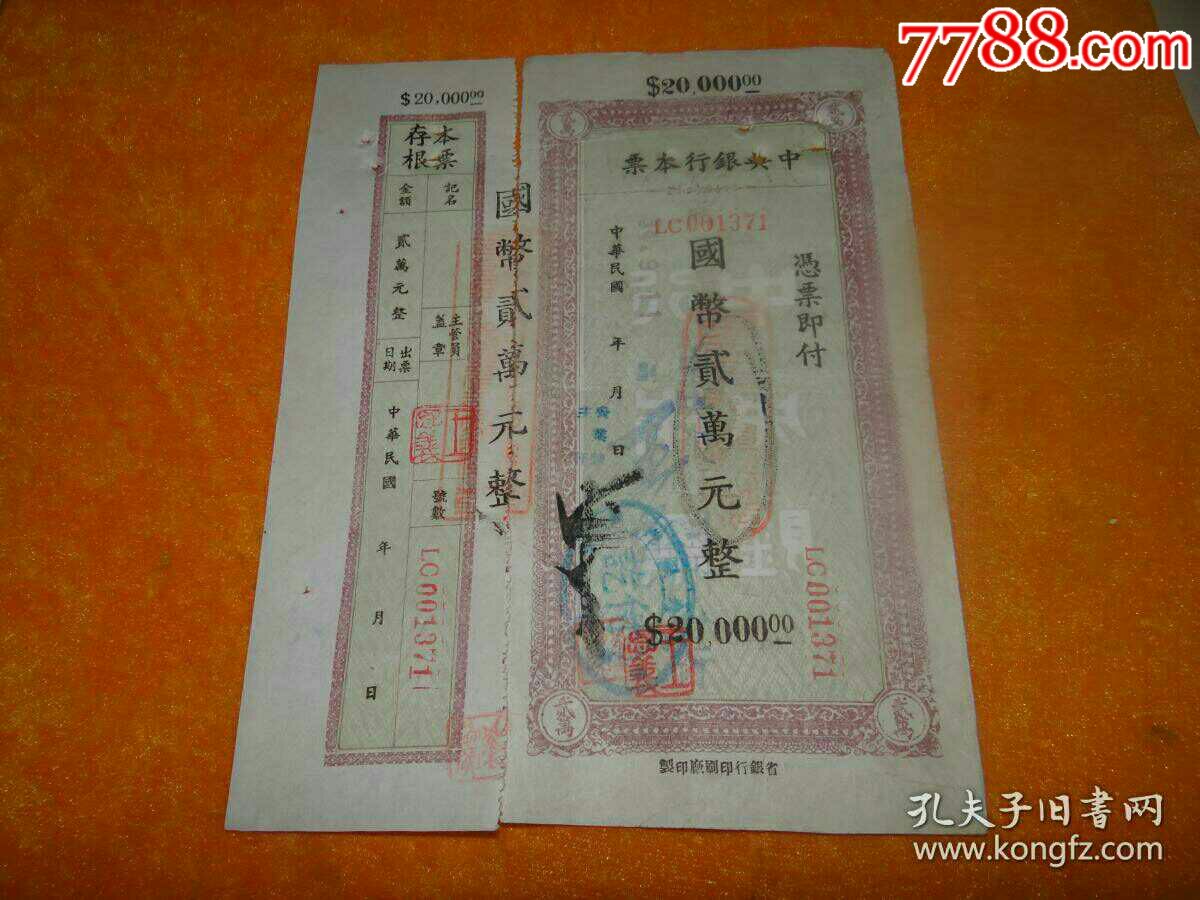 7788.com
$20,000.00
中央銀行本票
LC001371
憑票即付
國幣貳萬元整
中華民國 年 月 日
LC001371
$20,000.00
貳萬
貳萬
省銀行印刷廠印製
國幣貳萬元整
$20,000.00
本票存根
記名
主管員蓋章
號數
LC001371
金額
貳萬元整
出票日期
中華民國 年 月 日
孔夫子旧书网
www.kongfz.com